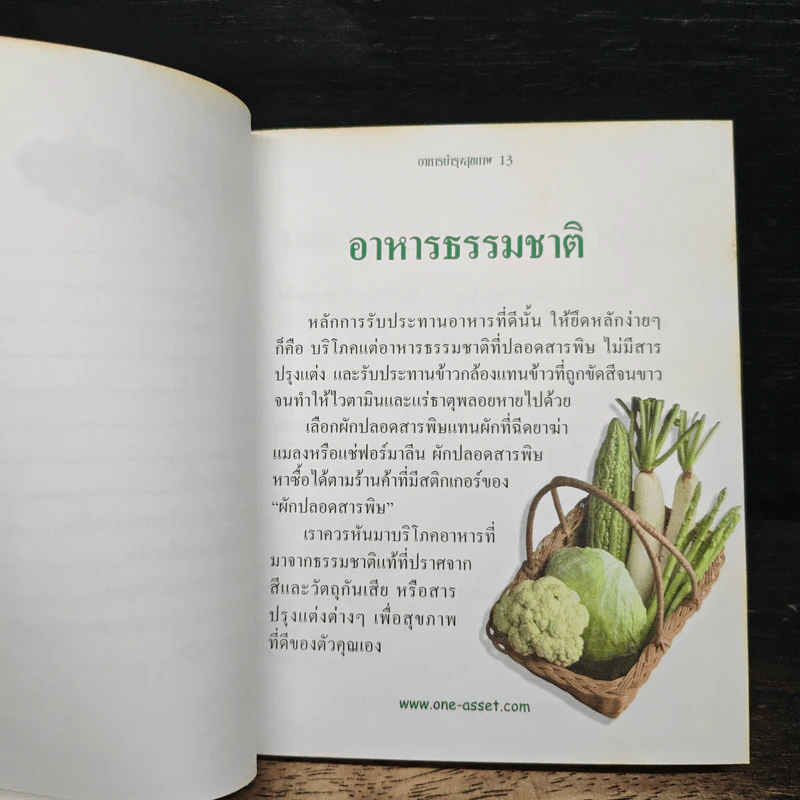 อาหารบำรุงสุขภาพ 13
อาหารธรรมชาติ
หลักการรับประทานอาหารที่ดีนั้น ให้ยึดหลักง่ายๆ
ก็คือ บริโภคแต่อาหารธรรมชาติที่ปลอดสารพิษ ไม่มีสาร
ปรุงแต่ง และรับประทานข้าวกล้องแทนข้าวที่ถูกขัดสีจนขาว
จนทำให้ไวตามินและแร่ธาตุพลอยหายไปด้วย
เลือกผักปลอดสารพิษแทนผักที่ฉีดยาฆ่า
แมลงหรือแช่ฟอร์มาลีน ผักปลอดสารพิษ
หาซื้อได้ตามร้านค้าที่มีสติกเกอร์ของ
“ผักปลอดสารพิษ”
เราควรหันมาบริโภคอาหารที่
มาจากธรรมชาติแท้ที่ปราศจาก
สีและวัตถุกันเสีย หรือสาร
ปรุงแต่งต่างๆ เพื่อสุขภาพ
ที่ดีของตัวคุณเอง
www.one-asset.com